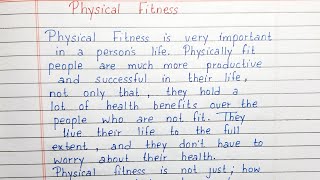 Physical Fitness
Physical Fitness is very important
in a person's life. Physically fit
people are much more productive
and successful in their life,
not only that, they hold a
lot of health benefits over the
people who are not fit. They
live their life to the full
extent, and they don't have to
worry about their health.
Physical fitness is not just; how